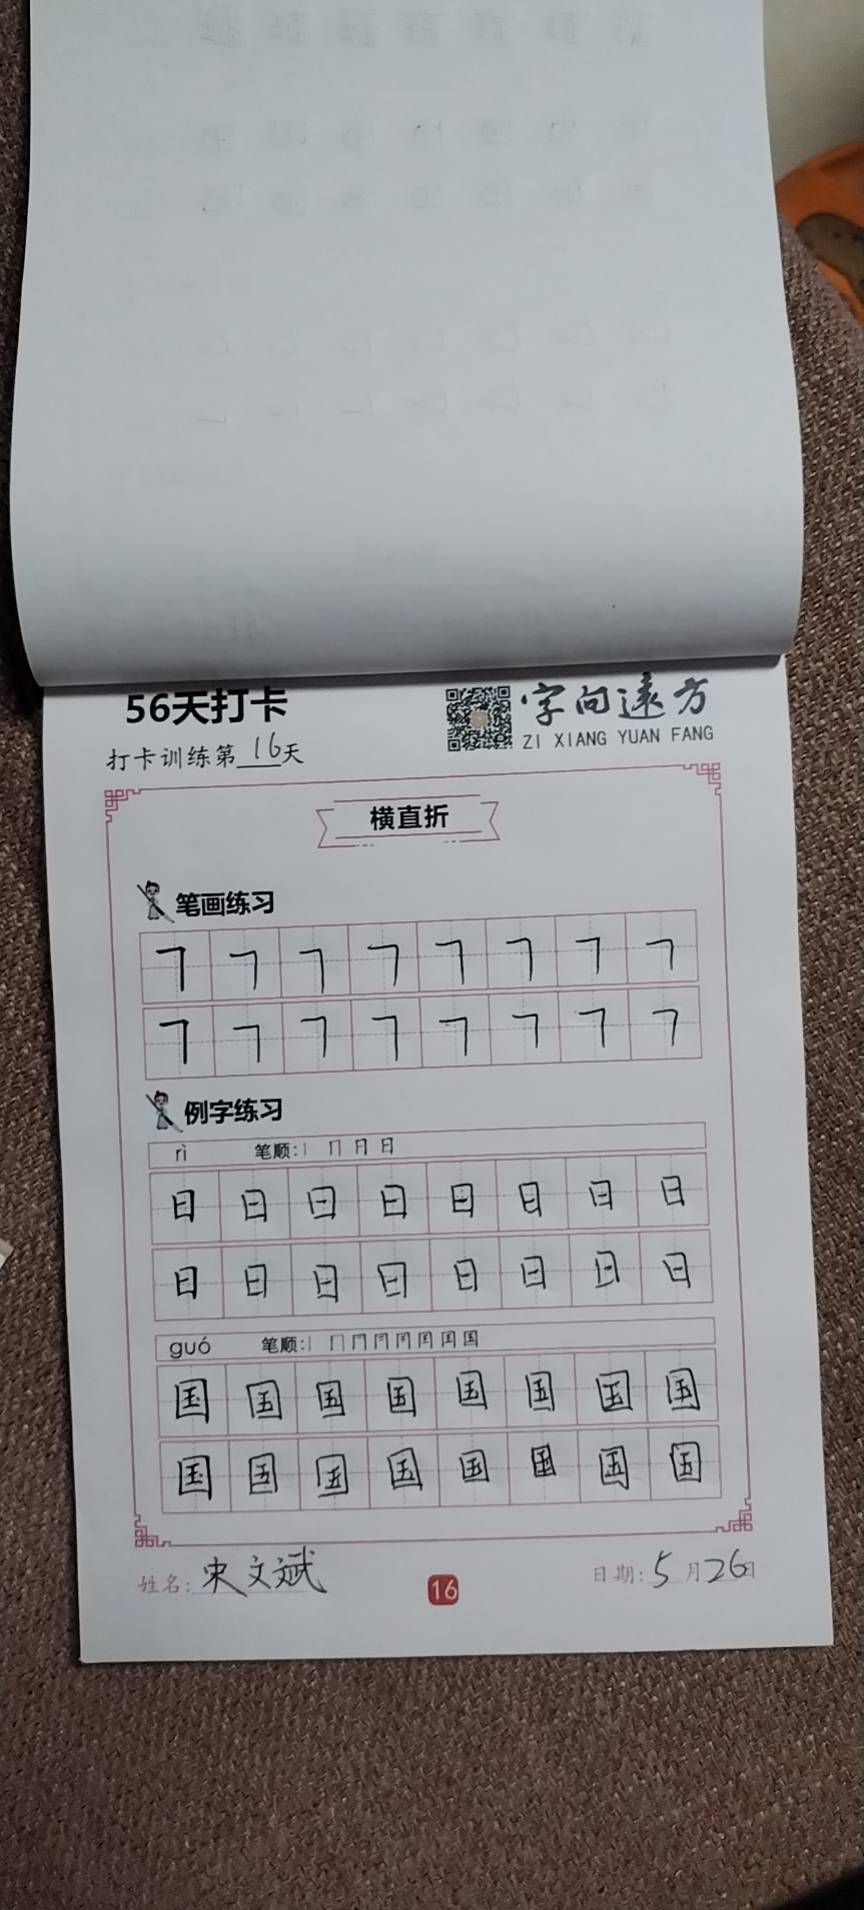 56天打卡
字向远方
ZI XIANG YUAN FANG
打卡训练第16天
横直折
笔画练习
㇕ ㇕ ㇕ ㇕ ㇕ ㇕ ㇕ ㇕
㇕ ㇕ ㇕ ㇕ ㇕ ㇕ ㇕ ㇕
例字练习
rì 笔顺:
日 日 日 日 日 日 日 日
日 日 日 日 日 日 日 日
guó 笔顺:
国 国 国 国 国 国 国 国
国 国 国 国 国 国 国 国
姓名: 宋文斌
16
日期: 5月26日